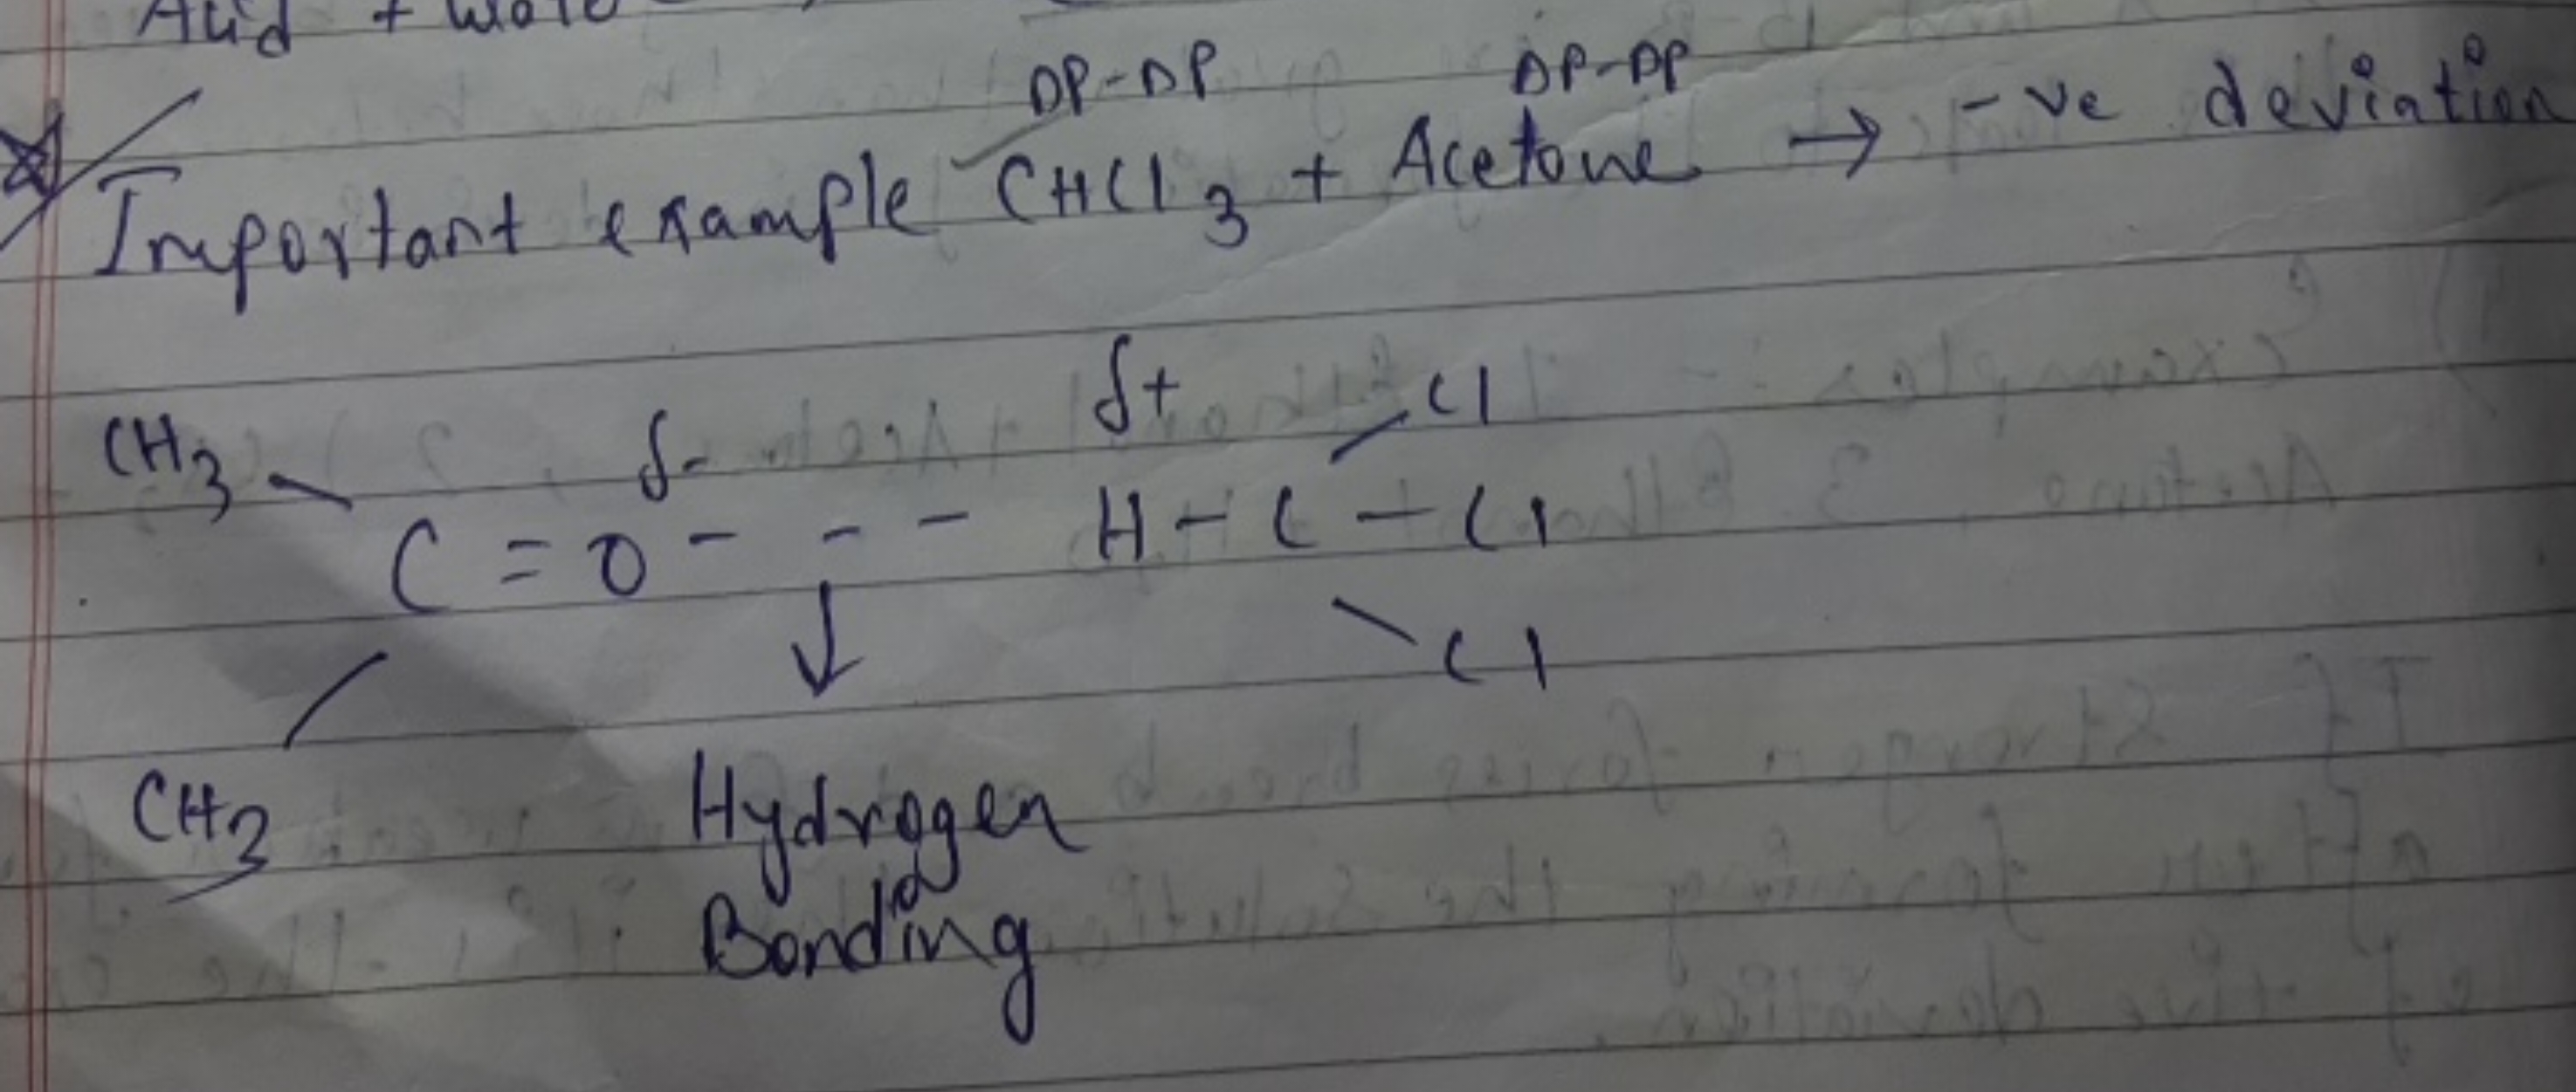 Acid + Wate
DP-DP DP-DP
Important example CHCl3 + Acetone → -ve deviation
δ+
CH3 δ- Cl
C = O - - - H - C - Cl
↓ Cl
CH3 Hydrogen
Bonding